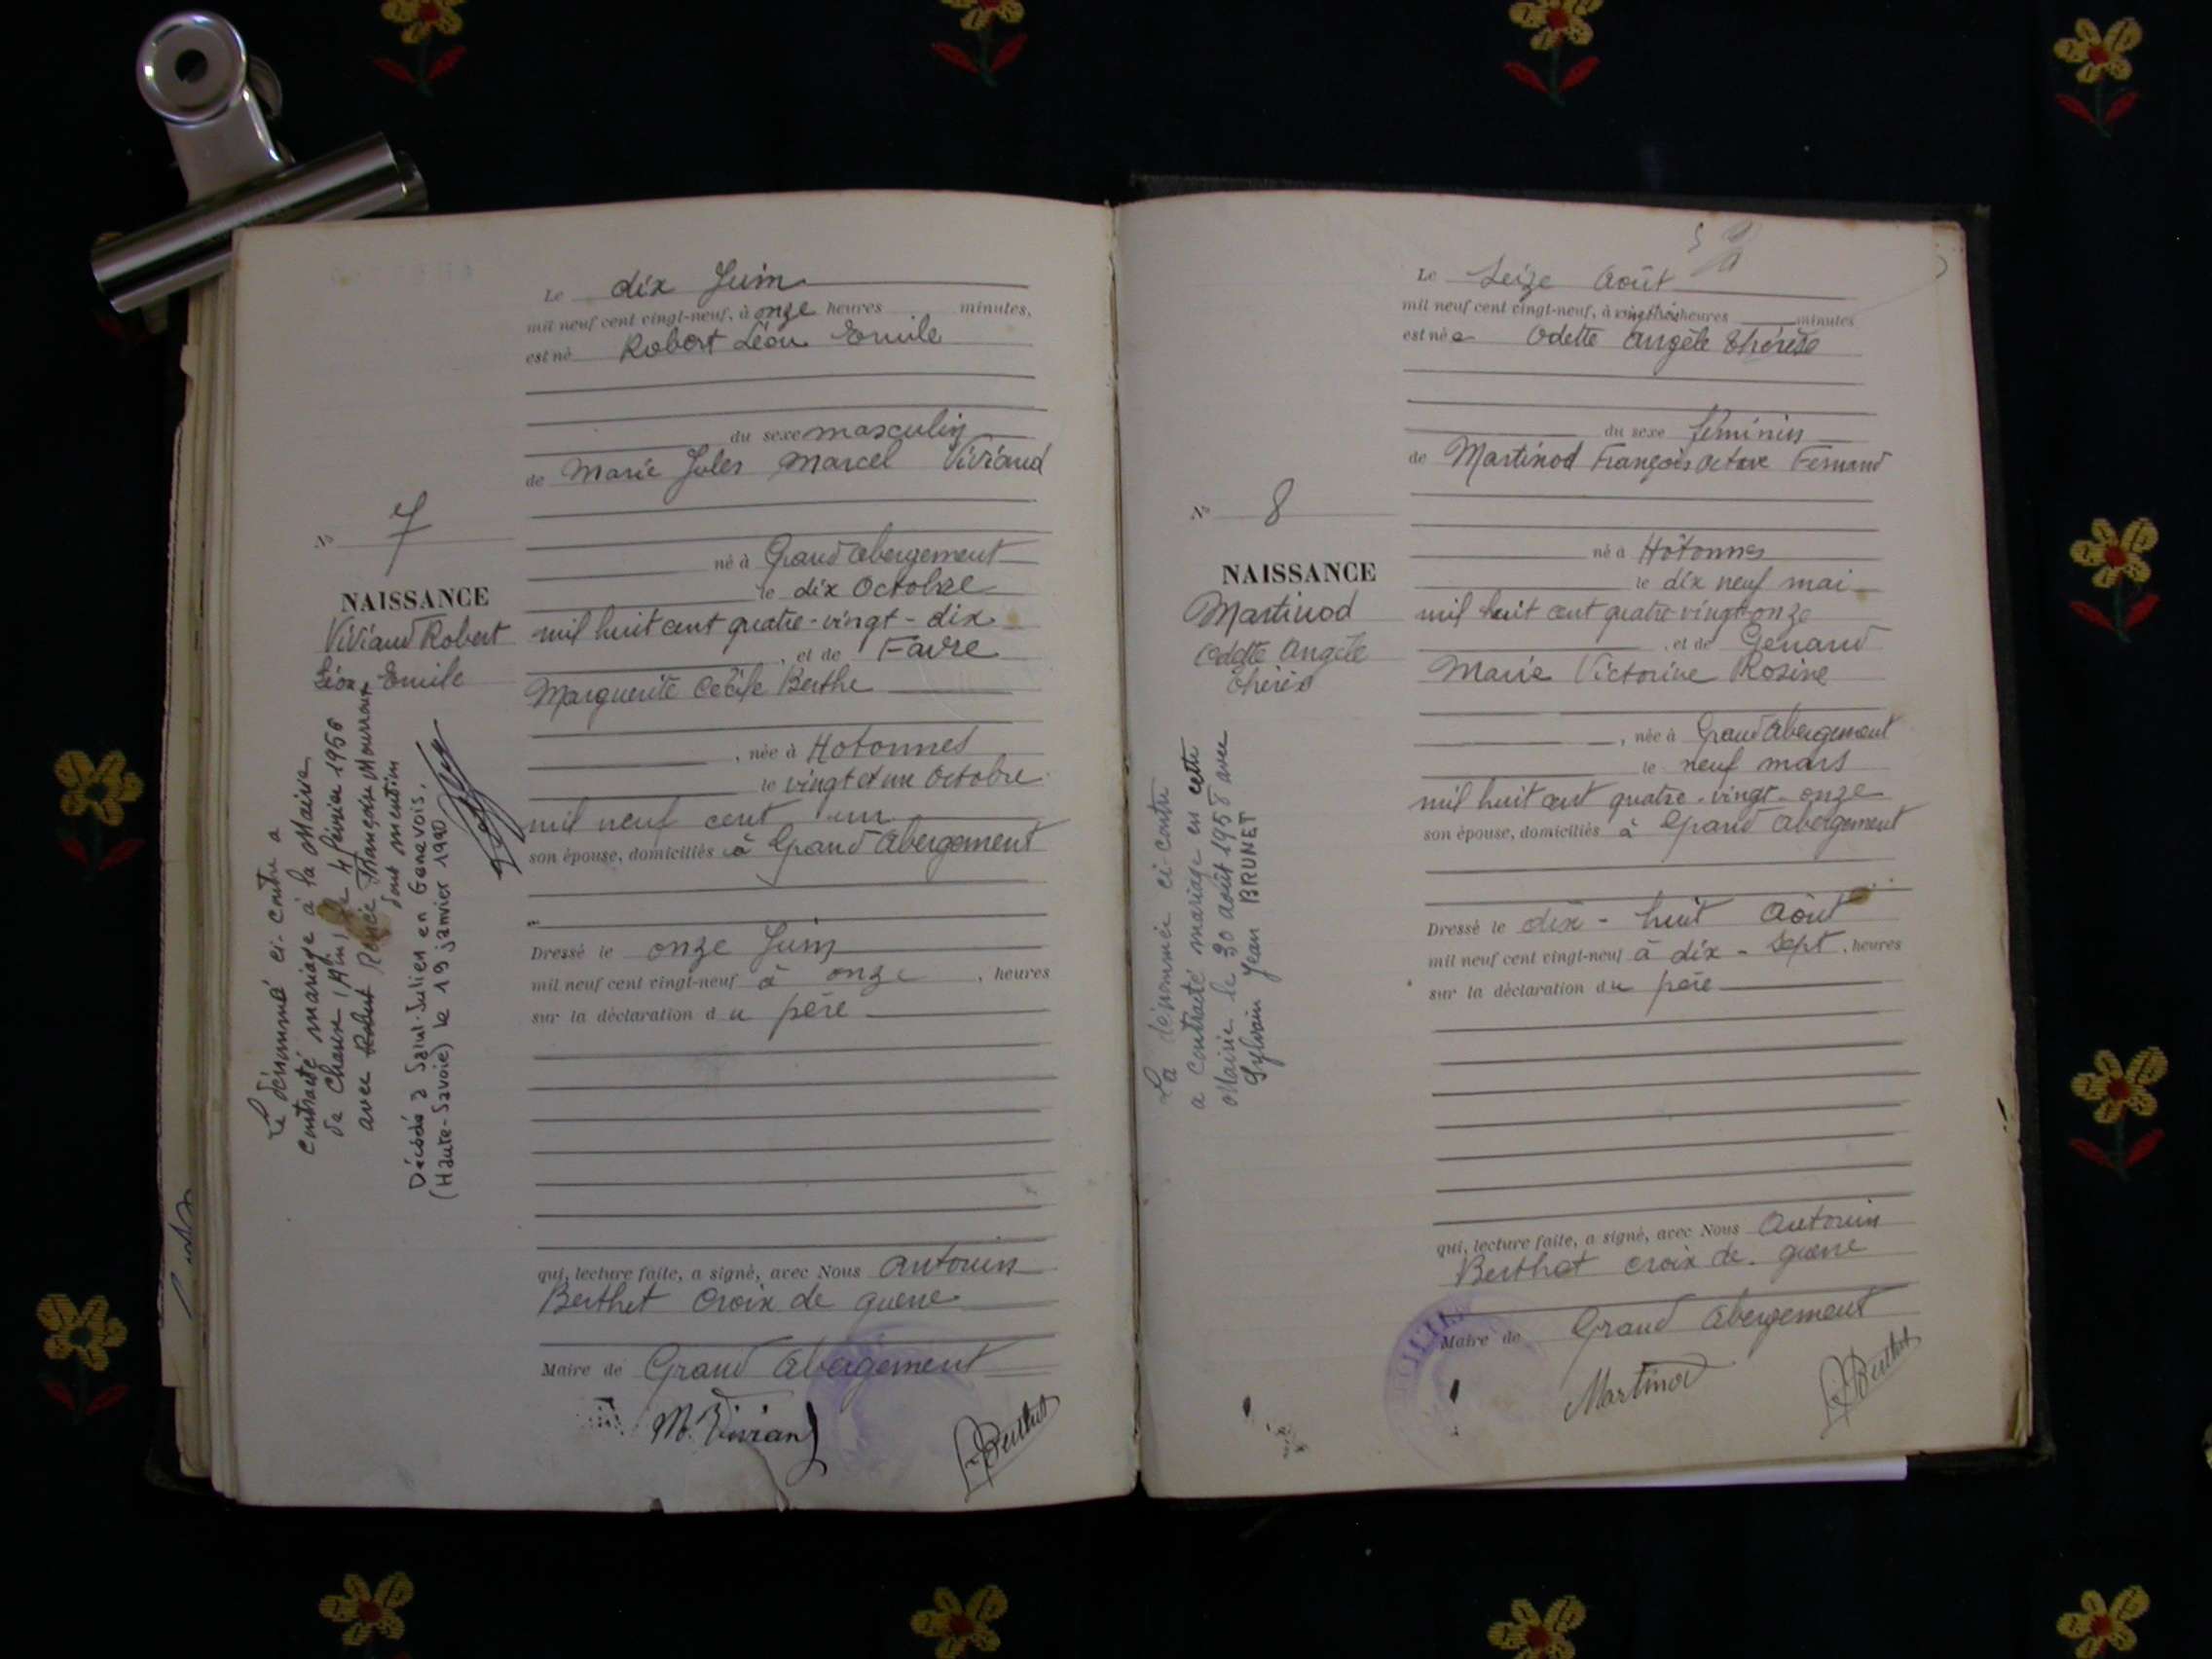 Le dix Juin
mil neuf cent vingt-neuf, à onze heures minutes,
est né Robert Léon Emile
du sexe masculin
de Marie Jules Marcel Viviand
né à Grand Abergement
le dix Octobre
mil huit cent quatre-vingt-dix
, et de Favre
Marguerite Cécile Berthe
, née à Hotonnes
le vingt et un Octobre
mil neuf cent un
son épouse, domiciliés à Grand Abergement
Dressé le onze Juin
mil neuf cent vingt-neuf à onze , heures
sur la déclaration du père
qui, lecture faite, a signé, avec Nous Antonin
Berthet Croix de guerre
Maire de Grand Abergement
M. Viviand
Berthet
No 7
NAISSANCE
Viviand Robert
Léon Emile
Le dénommé ci-contre a
contracté mariage à la Mairie
de (Ain) le 4 février 1956
avec Robert Renée Françoise Mourraux
dont mention
Décédé à Saint-Julien en Genevois,
(Haute-Savoie) le 19 janvier 1990
Le Seize Août
mil neuf cent vingt-neuf, à vingt trois heures minutes
est née Odette Angèle Thérèse
du sexe féminin
de Martinod François Octave Fernand
né à Hotonnes
le dix neuf mai
mil huit cent quatre-vingt-onze
, et de Genand
Marie Victorine Rosine
, née à Grand Abergement
le neuf mars
mil huit cent quatre-vingt-onze
son épouse, domiciliés à Grand Abergement
Dressé le dix-huit Août
mil neuf cent vingt-neuf à dix-sept, heures
sur la déclaration du père
qui, lecture faite, a signé, avec Nous Antonin
Berthet croix de guerre
Maire de Grand Abergement
Martinod
Berthet
No 8
NAISSANCE
Martinod
Odette Angèle
Thérèse
La dénommée ci-contre
a contracté mariage en cette
Mairie le 30 août 1958 avec
Sylvain Jean BRUNET